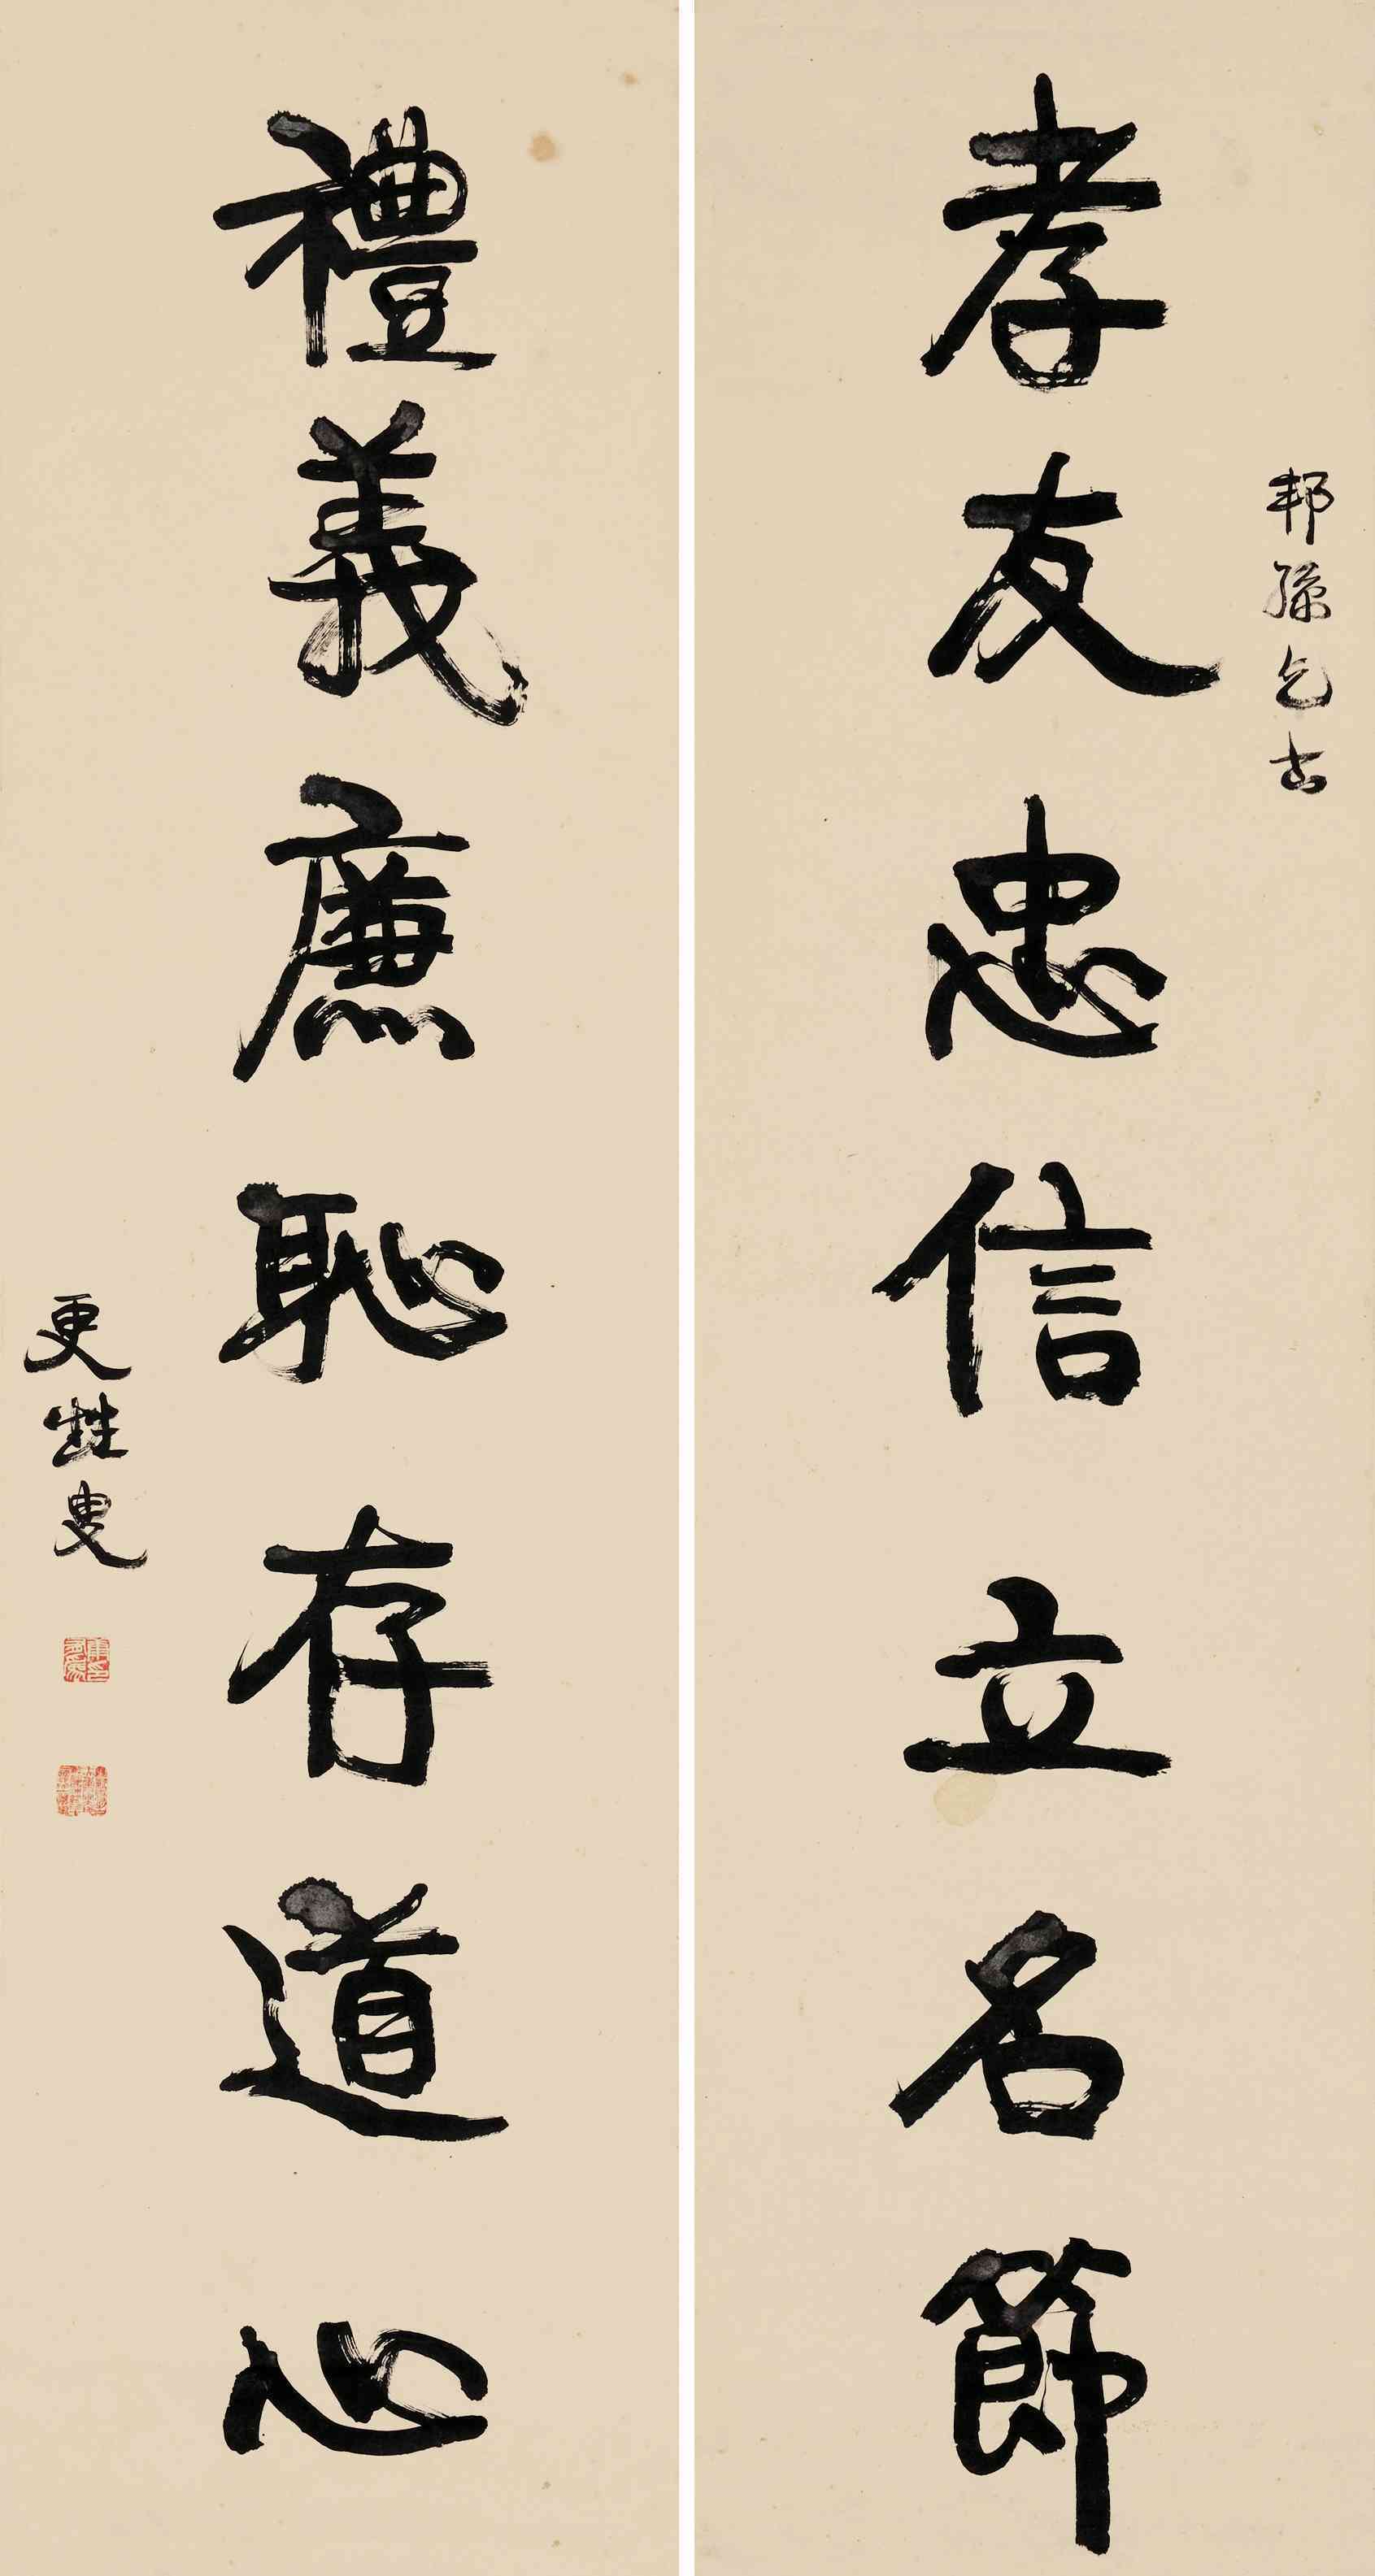 邦孫乞書
孝友忠信立名節
禮義廉恥存道心
更甡叟
康印有為